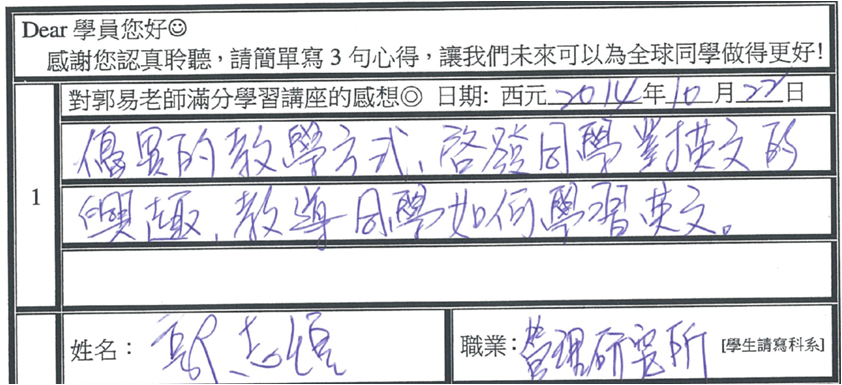 Dear 學員您好☺
感謝您認真聆聽，請簡單寫 3 句心得，讓我們未來可以為全球同學做得更好!
對郭易老師滿分學習講座的感想◎ 日期: 西元 2014 年 10 月 22 日
1
優異的教學方式、啓發同學對英文的
興趣、教導同學如何學習英文。
姓名： 志恒
職業: 管理研究所 [學生請寫科系]